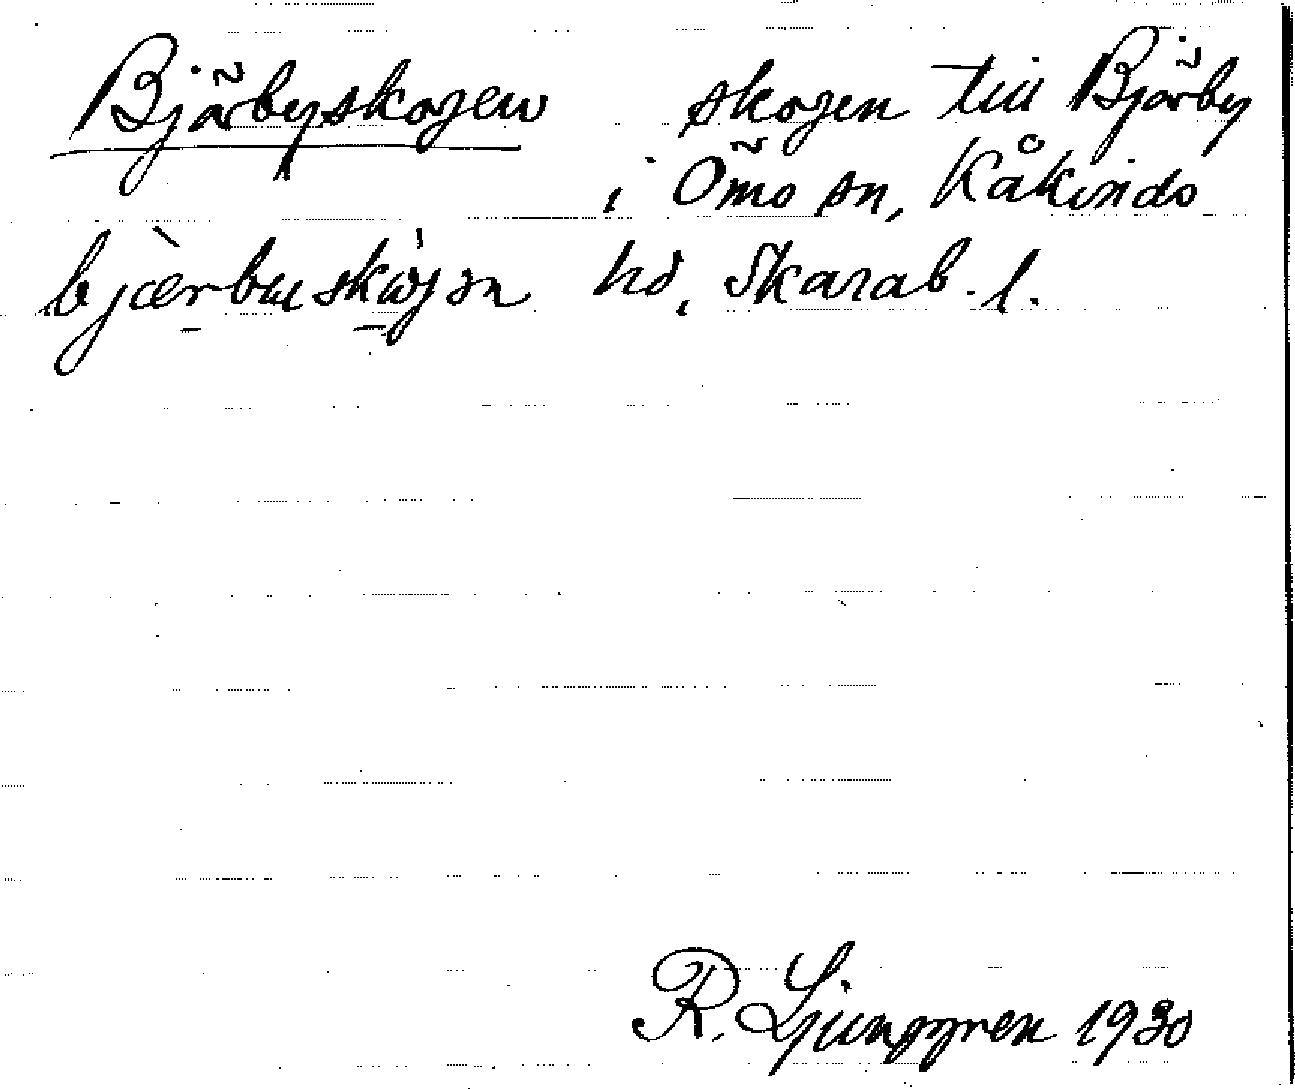 Bjärbyskogen skogen till Bjärby
i Ömo sn, Kåkinds
bjærbuskωjən hd, Skarab. l.
R. Ljunggren 1930